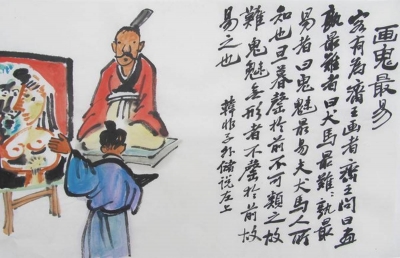 画鬼最易
客有为齊王画者齊王问曰画
孰最難者曰犬马最難孰最
易者曰鬼魅最易夫犬马人所
知也旦暮罄於前不可類之故
難鬼魅无形者不罄於前故
易之也
韓非子外储说左上